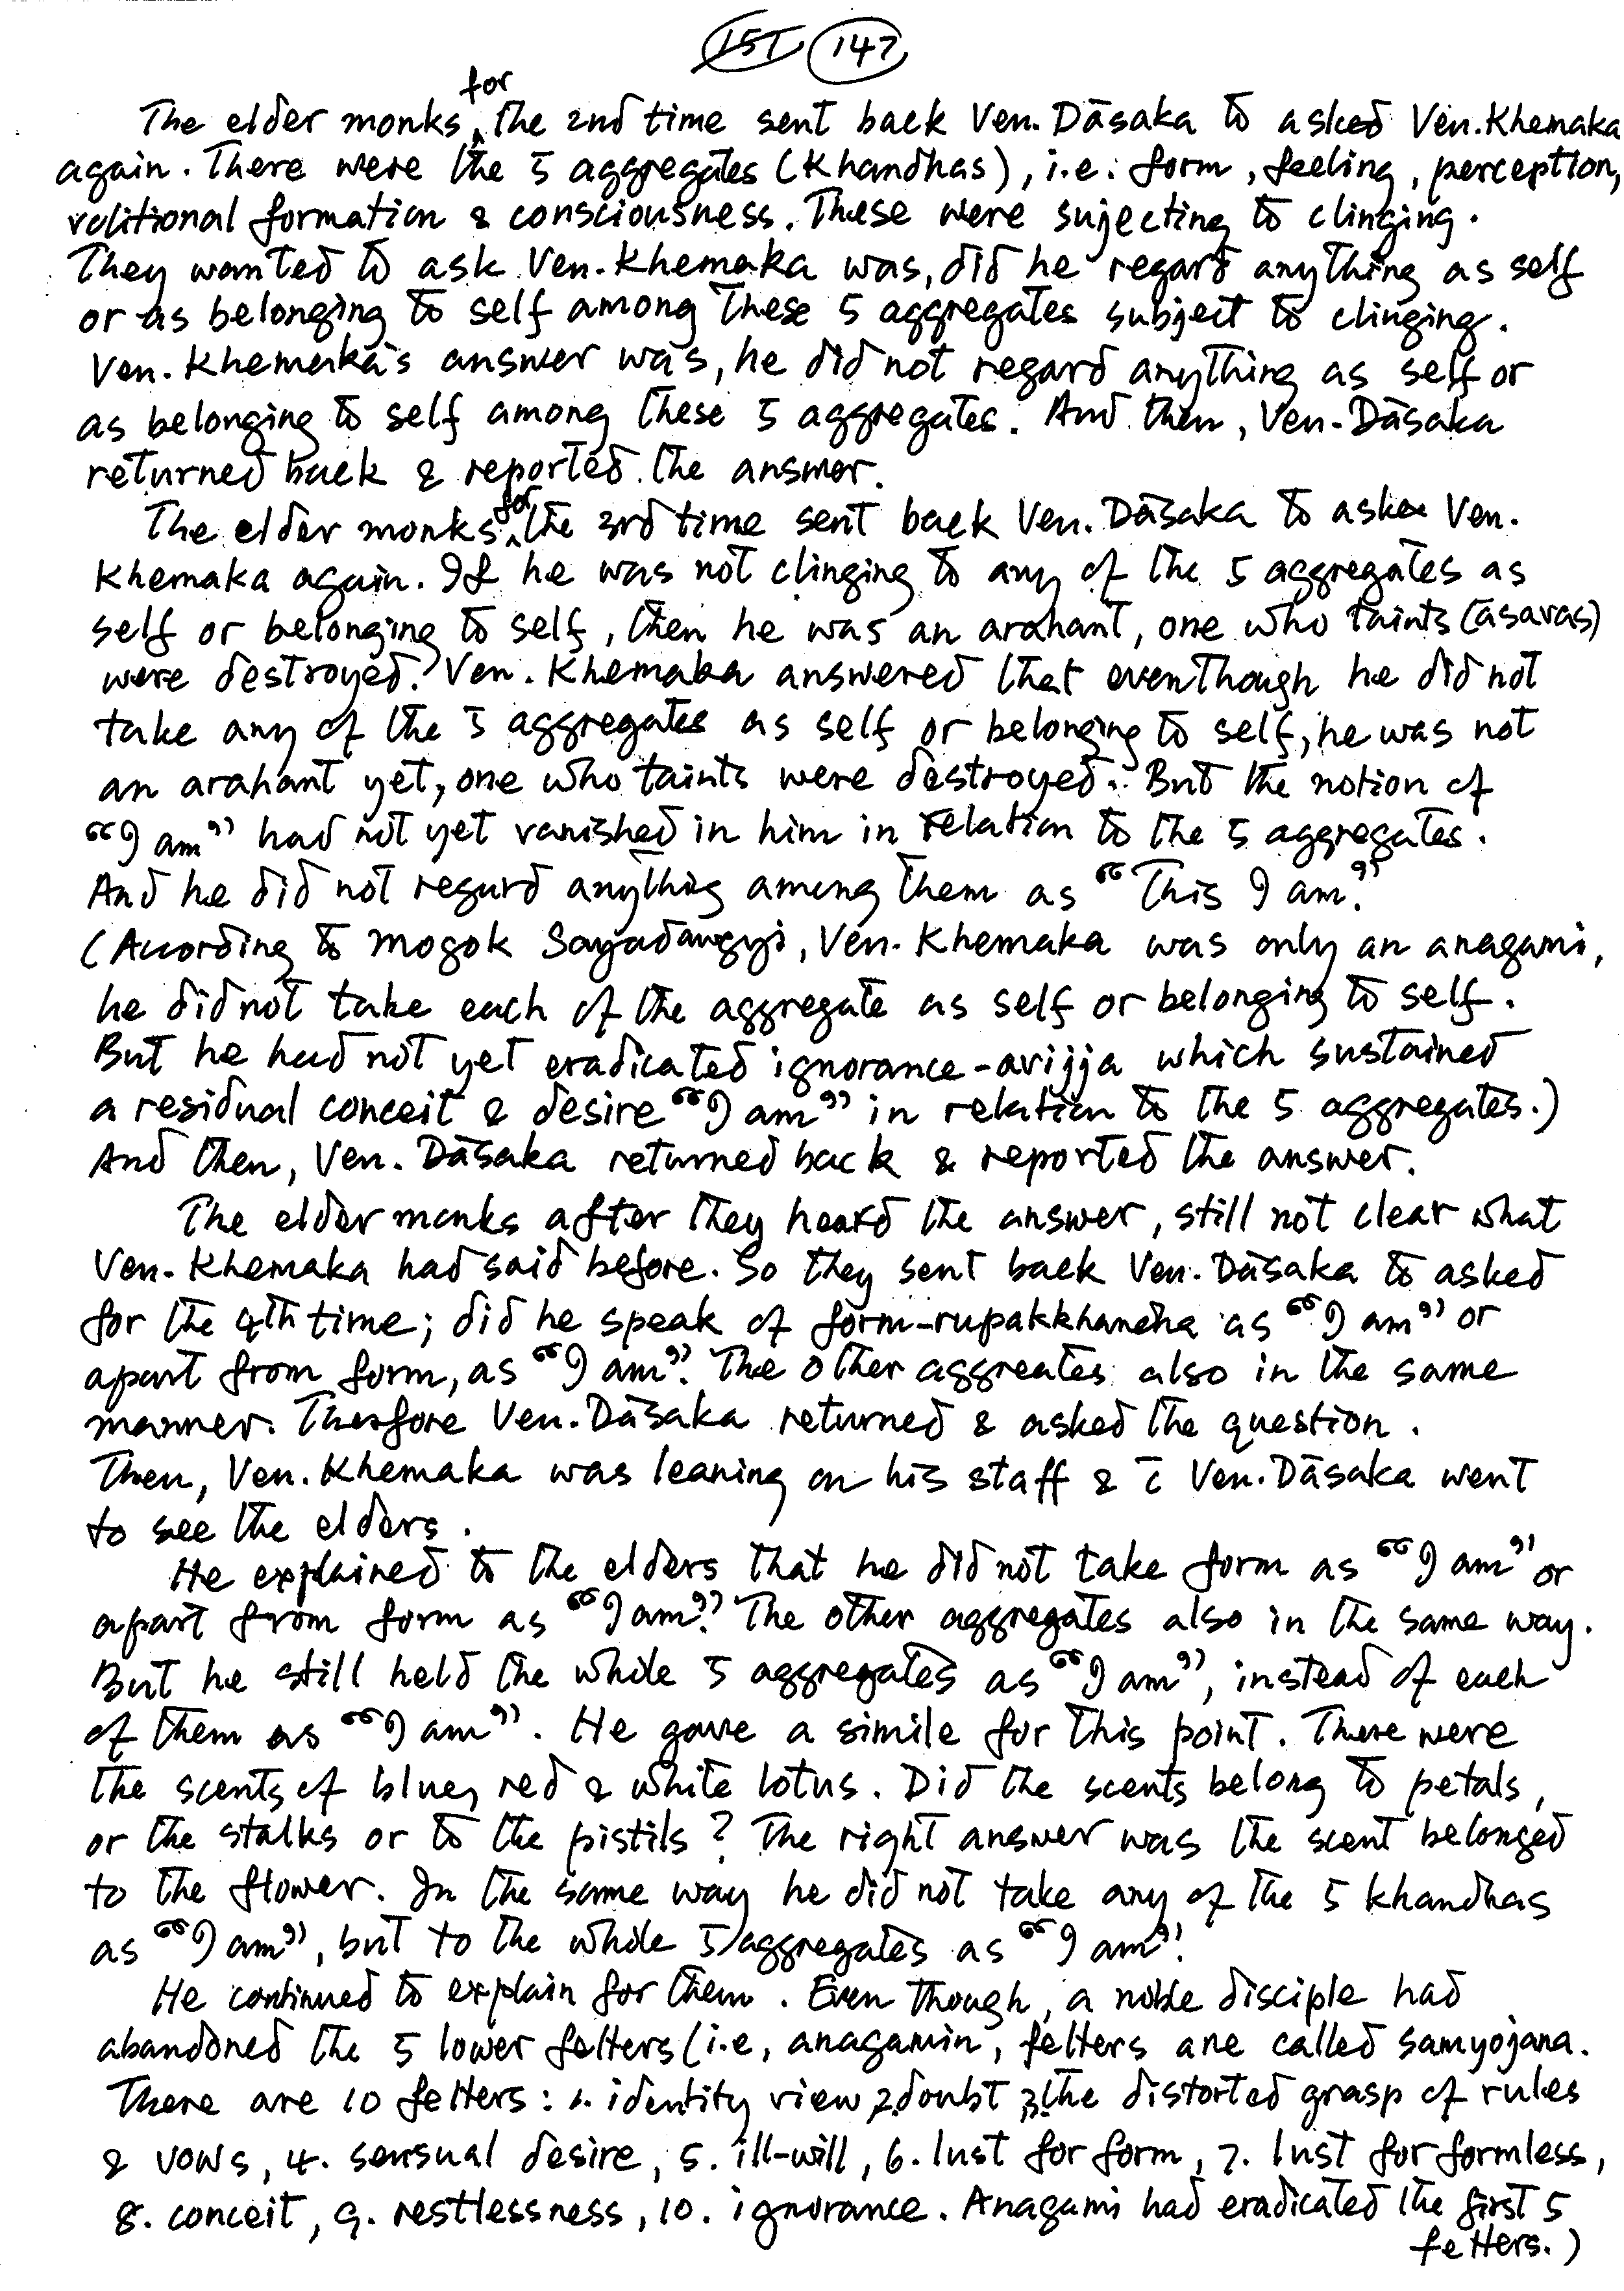 151 147
The elder monks for the 2nd time sent back Ven. Dāsaka to asked Ven. Khemaka
again. There were the 5 aggregates (Khandhas), i.e: form, feeling, perception,
volitional formation & consciousness. These were sujecting to clinging.
They wanted to ask Ven. Khemaka was, did he regard anything as self
or as belonging to self among these 5 aggregates subject to clinging.
Ven. Khemaka's answer was, he did not regard anything as self or
as belonging to self among these 5 aggregates. And then, Ven. Dāsaka
returned back & reported the answer.
The elder monks for the 3rd time sent back Ven. Dāsaka to asked Ven.
Khemaka again. If he was not clinging to any of the 5 aggregates as
self or belonging to self, then he was an arahant, one who taints (āsavas)
were destroyed? Ven. Khemaka answered that eventhough he did not
take any of the 5 aggregates as self or belonging to self, he was not
an arahant yet, one who taints were destroyed. But the notion of
“I am” had not yet vanished in him in relation to the 5 aggregates.
And he did not regard anything among them as “This I am.”
(According to Mogok Sayadawgyi, Ven. Khemaka was only an anagami,
he did not take each of the aggregate as self or belonging to self.
But he had not yet eradicated ignorance-avijja which sustained
a residual conceit & desire “I am” in relation to the 5 aggregates.)
And then, Ven. Dāsaka returned back & reported the answer.
The elder monks after they heard the answer, still not clear what
Ven. Khemaka had said before. So they sent back Ven. Dāsaka to asked
for the 4th time; did he speak of form-rupakkhandha as “I am” or
apart from form, as “I am”. The other aggreates also in the same
manner. Therfore Ven. Dāsaka returned & asked the question.
Then, Ven. Khemaka was leaning on his staff & c̄ Ven. Dāsaka went
to see the elders.
He explained to the elders that he did not take form as “I am” or
apart from form as “I am”. The other aggregates also in the same way.
But he still held the whole 5 aggregates as “I am”, instead of each
of them as “I am”. He gave a simile for this point. There were
the scents of blue, red & white lotus. Did the scents belong to petals,
or the stalks or to the pistils? The right answer was the scent belonged
to the flower. In the same way he did not take any of the 5 khandhas
as “I am”, but to the whole 5 aggregates as “I am”.
He continued to explain for them. Even though, a noble disciple had
abandoned the 5 lower fetters (i.e, anagamin, fetters are called samyojana.
There are 10 fetters: 1. identity view 2. doubt 3. the distorted grasp of rules
& vows, 4. sensual desire, 5. ill-will, 6. lust for form, 7. lust for formless,
8. conceit, 9. restlessness, 10. ignorance. Anagami had eradicated the first 5
fetters.)